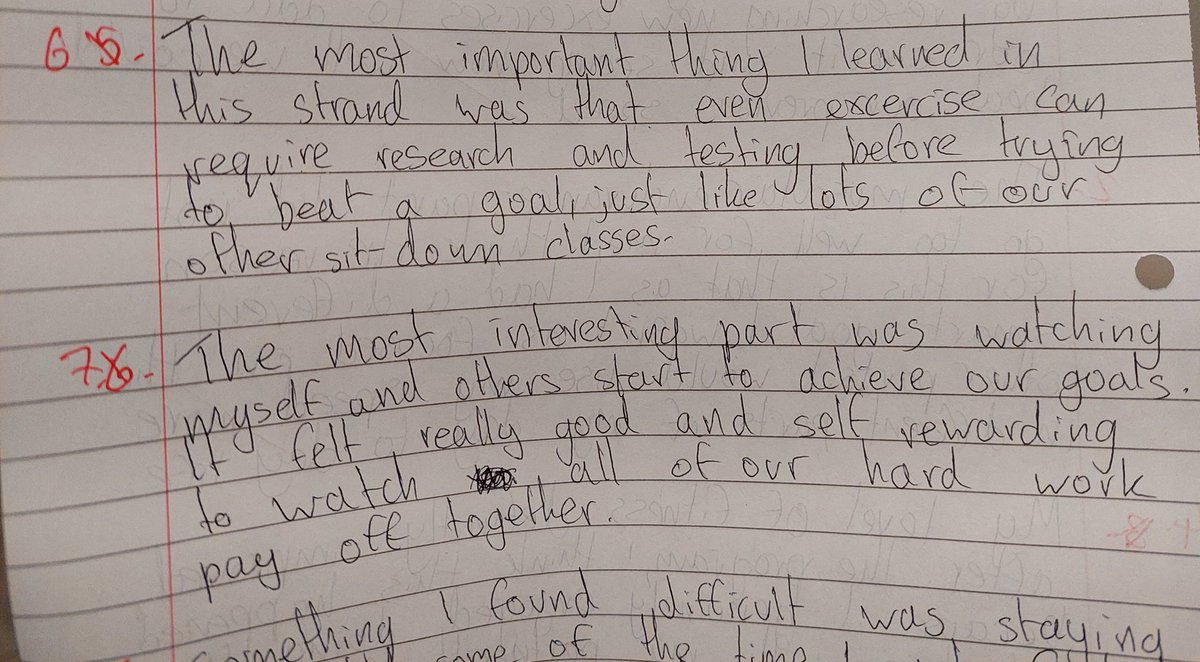 6 5. The most important thing I learned in
this strand was that even excercise can
require research and testing before trying
to beat a goal, just like lots of our
other sit-down classes.
7.6. The most interesting part was watching
myself and others start to achieve our goals.
It felt really good and self rewarding
to watch all of our hard work
pay off together.
Something I found difficult was staying
some of the time